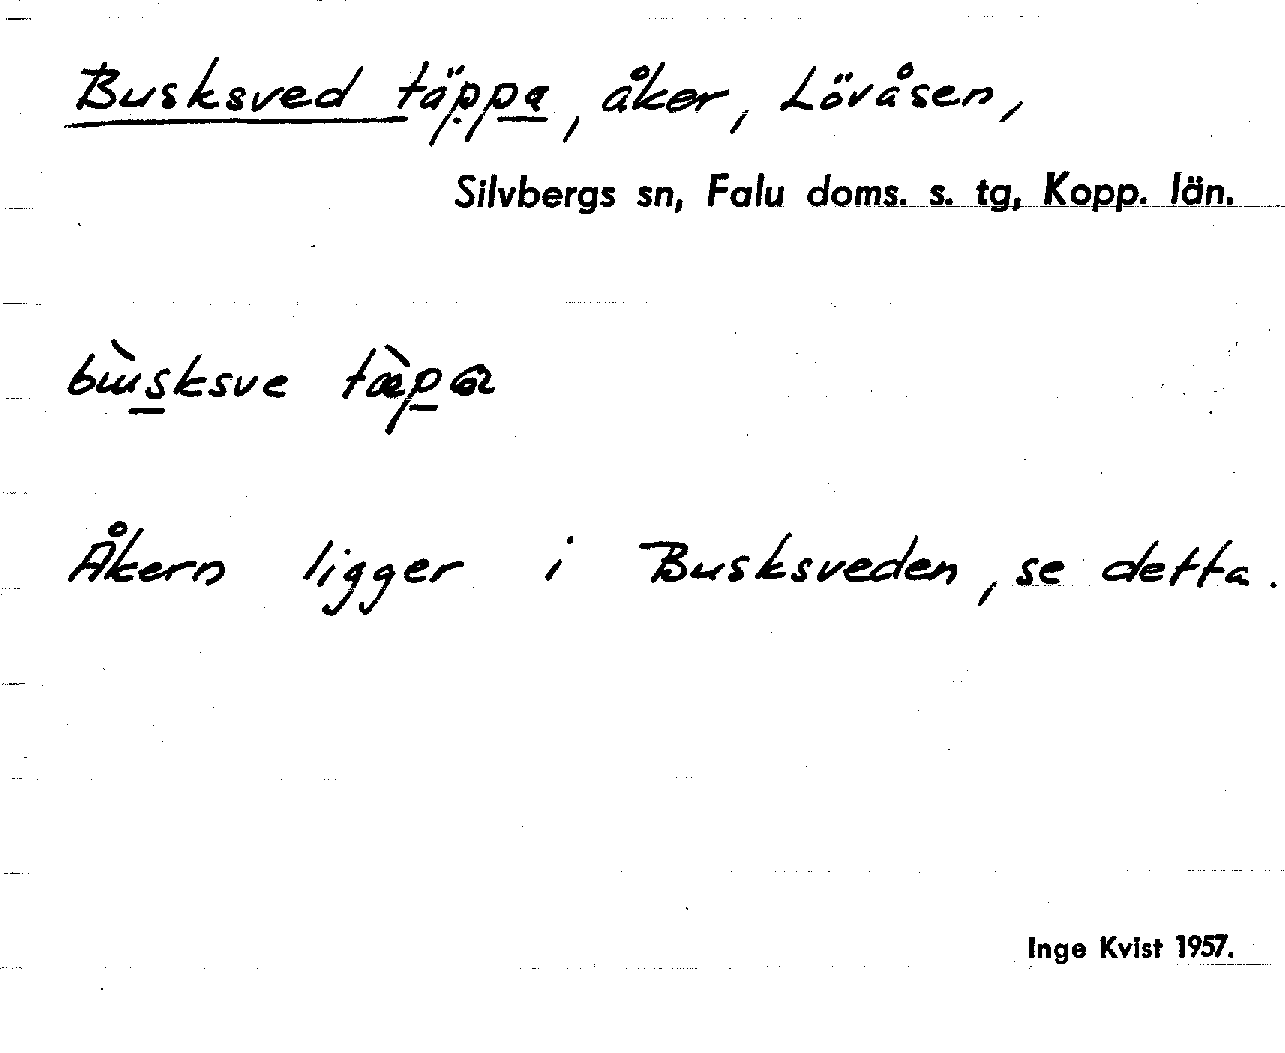 Busksved täppa, åker, Lövåsen,
Silvbergs sn, Falu doms. s. tg, Kopp. län.
bùsksve tæ̀pa
Åkern ligger i Busksveden, se detta.
Inge Kvist 1957.